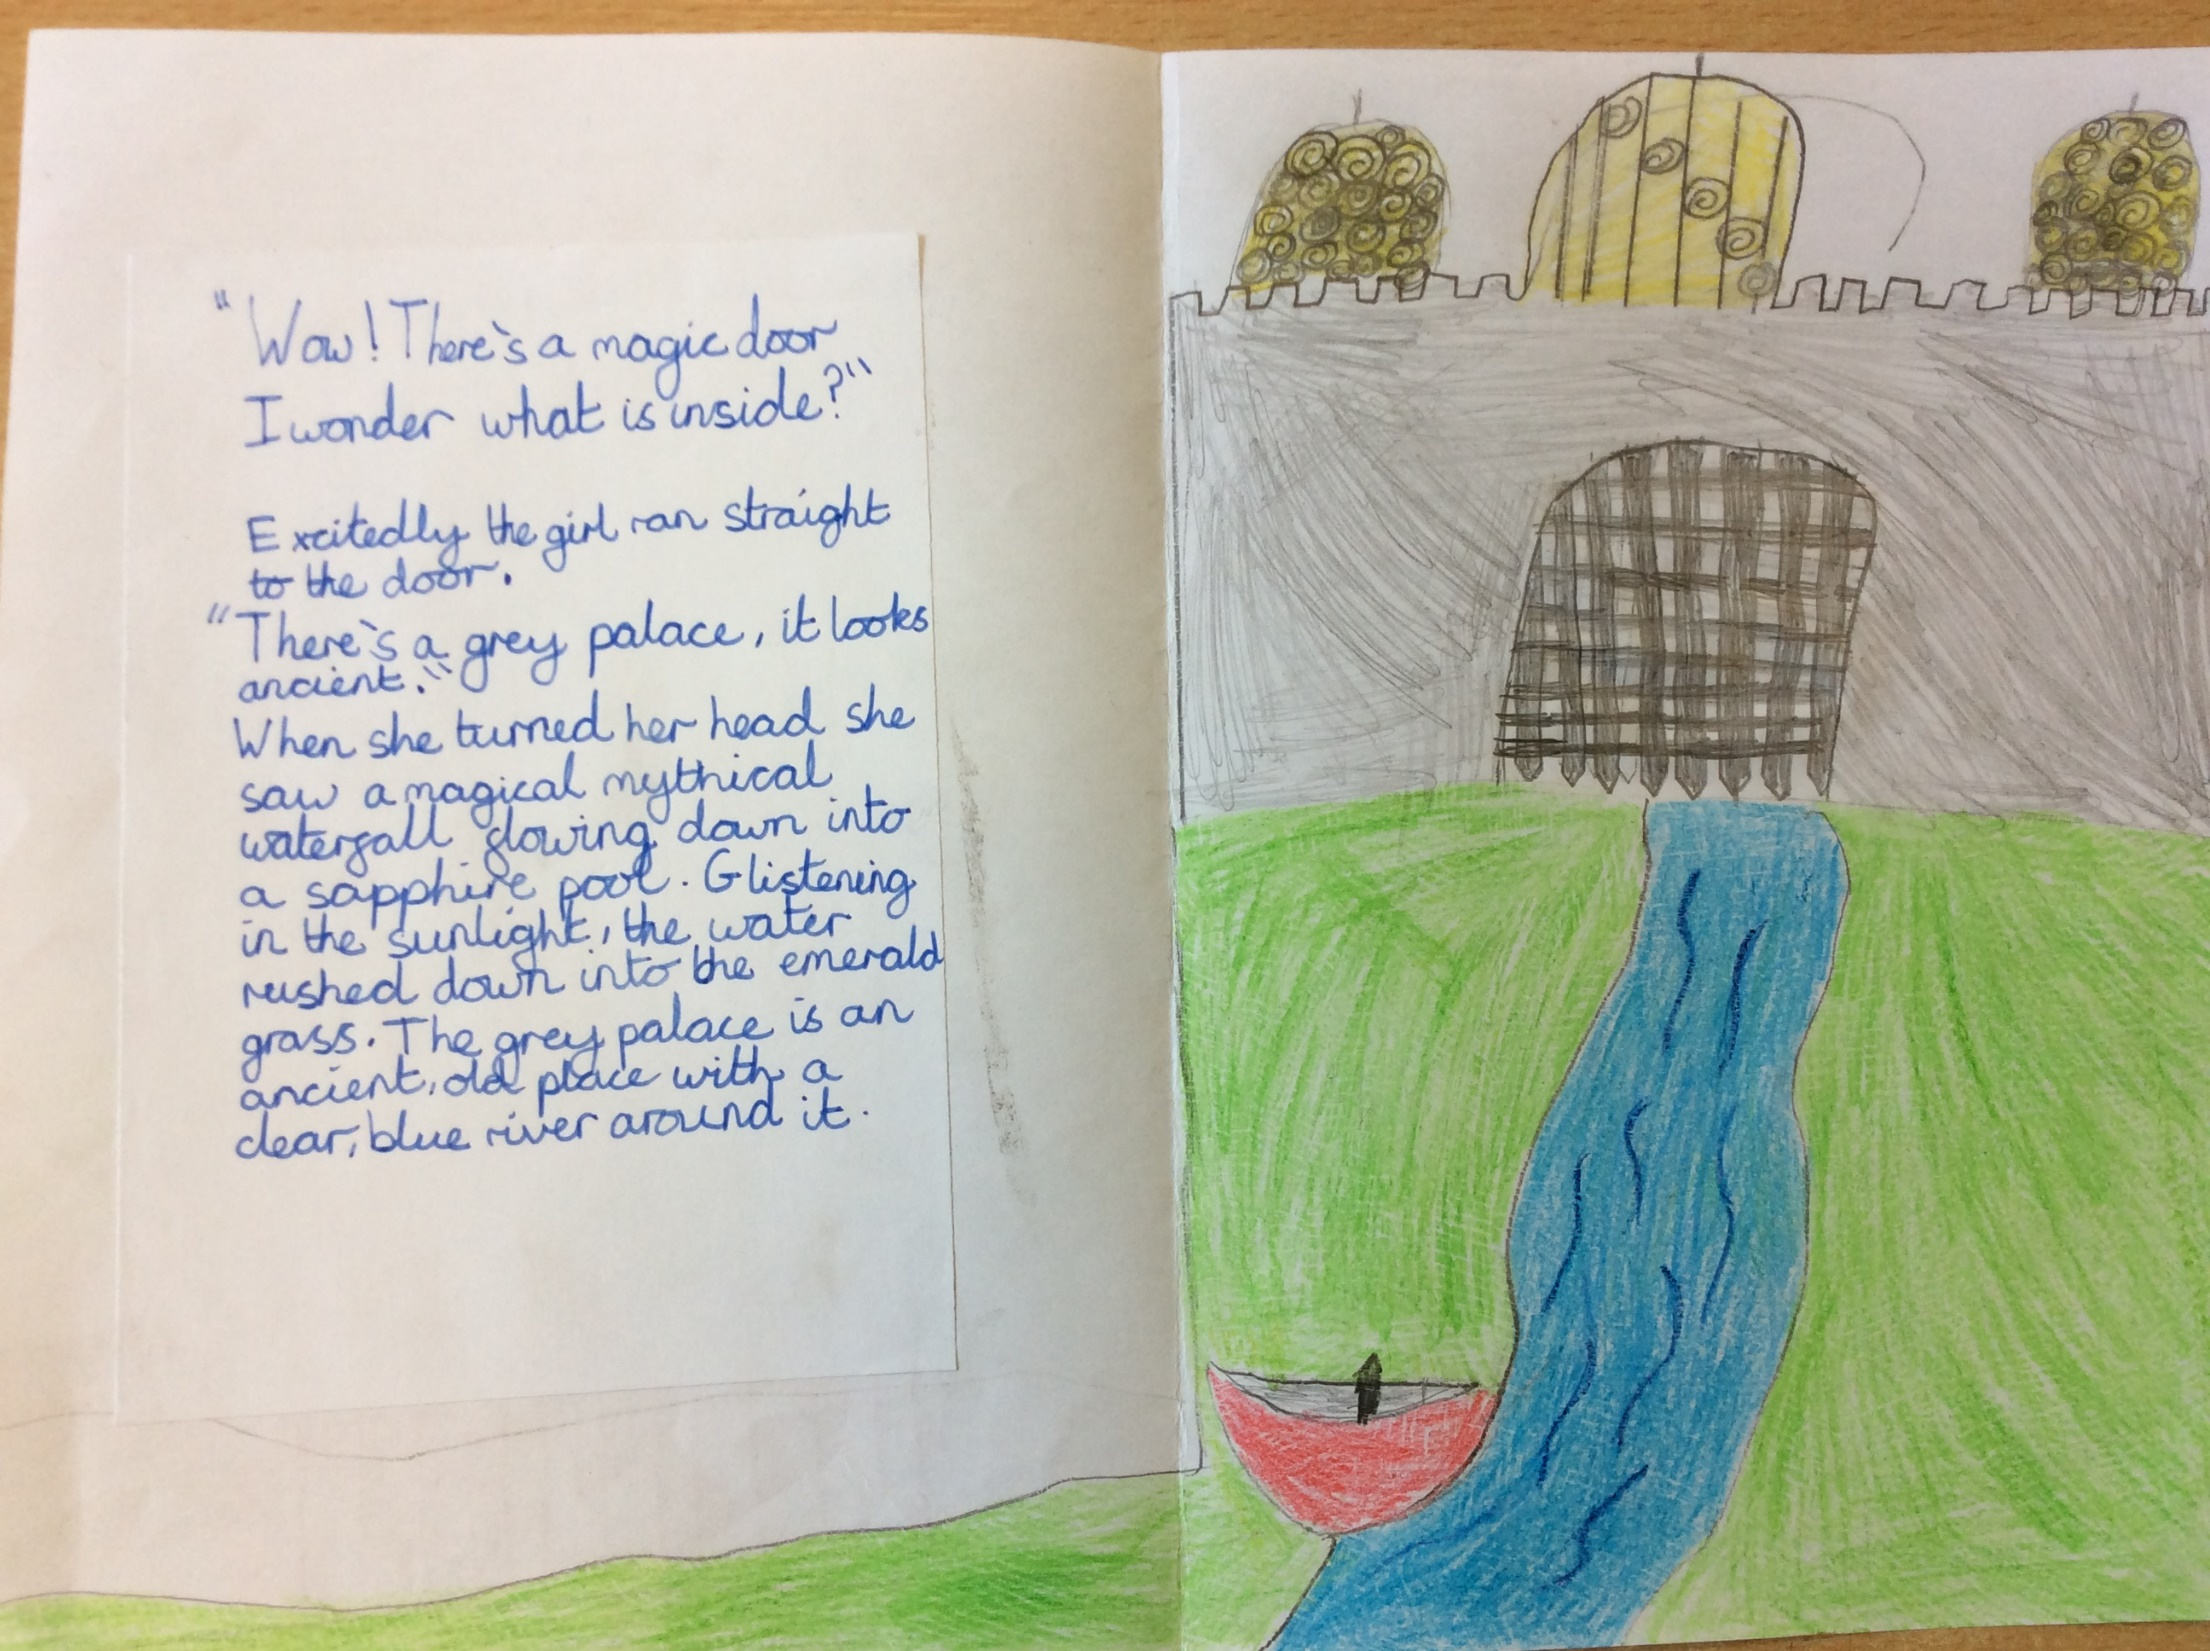 "Wow! There's a magic door
I wonder what is inside?"
Excitedly the girl ran straight
to the door.
"There's a grey palace, it looks
ancient."
When she turned her head she
saw a magical mythical
waterfall flowing down into
a sapphire pool. Glistening
in the sunlight, the water
rushed down into the emerald
grass. The grey palace is an
ancient, old place with a
clear, blue river around it.